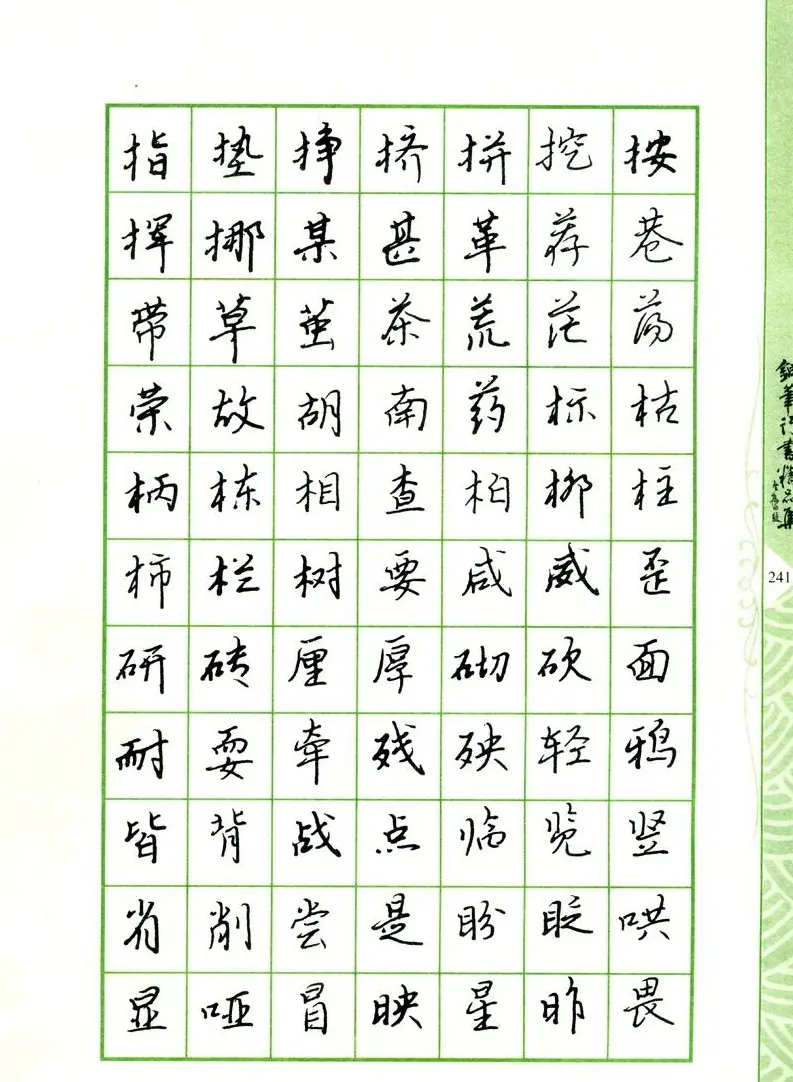 指垫挣挤拼挖按
挥挪某甚革荐巷
带草茧茶荒茫荡
荣故胡南药标枯
柄栋相查柏柳柱
柿栏树要咸威歪
研砖厘厚砌砍面
耐耍牵残殃轻鸦
皆背战点临览竖
省削尝是盼眨哄
显哑冒映星昨畏
鋼筆行書精品集
241